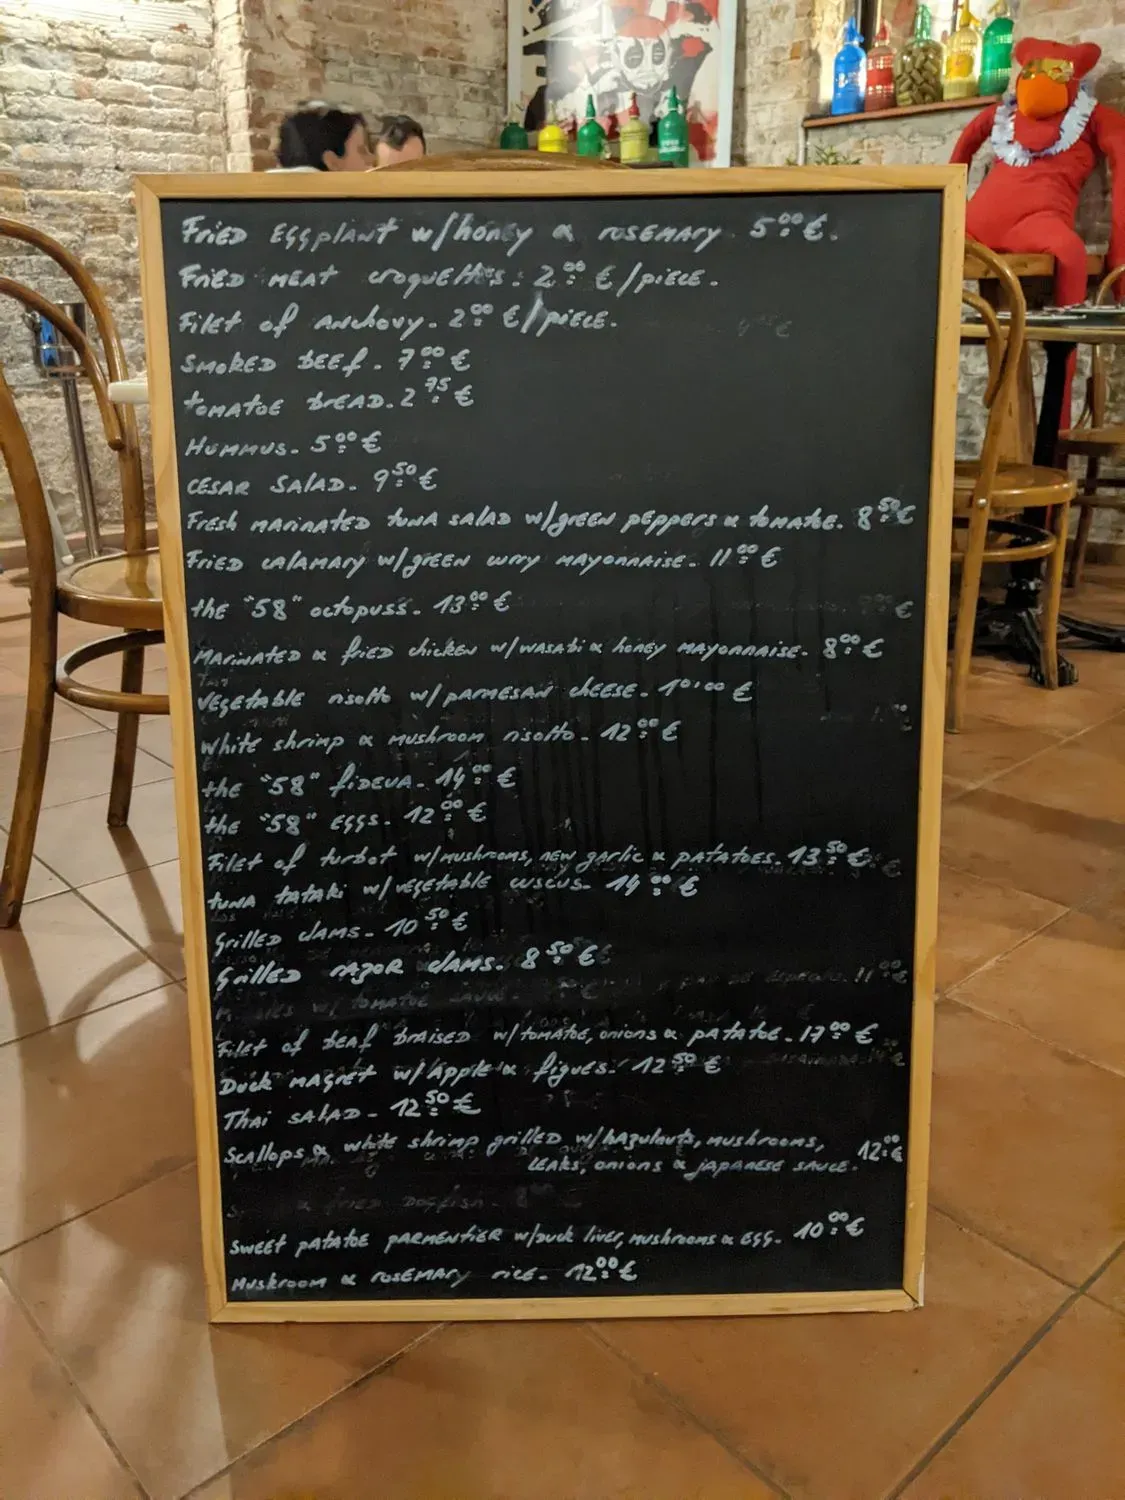 Fried Eggplant w/honey & rosemary 5.00 €.
Fried meat croquettes. 2.00 €/piece.
Filet of anchovy. 2.00 €/piece.
Smoked beef. 7.00 €
tomatoe bread. 2.75 €
Hummus. 5.00 €
cesar salad. 9.50 €
Fresh marinated tuna salad w/green peppers & tomatoe. 8.50 €
Fried calamary w/green curry mayonnaise. 11.00 €
the "58" octopuss. 13.00 €
Marinated & fried chicken w/wasabi & honey mayonnaise. 8.00 €
vegetable risotto w/parmesan cheese. 10.00 €
white shrimp & mushroom risotto. 12.00 €
the "58" fideua. 14.00 €
the "58" eggs. 12.00 €
Filet of turbot w/mushrooms, new garlic & patatoes. 13.50 €
tuna tataki w/vegetable cuscus. 14.00 €
Grilled clams. 10.50 €
Grilled razor clams. 8.50 €
w/tomatoe sauce.
Filet of beaf braised w/tomatoe, onions & patatoe. 17.00 €
Duck magret w/apple & figues. 12.50 €
Thai salad. 12.50 €
Scallops & white shrimp grilled w/hazulnuts, mushrooms, 12.00 €
leaks, onions & japanese sauce.
& fried dogfish.
sweet patatoe parmentier w/duck liver, mushrooms & egg. 10.00 €
Mushroom & rosemary rice. 12.00 €